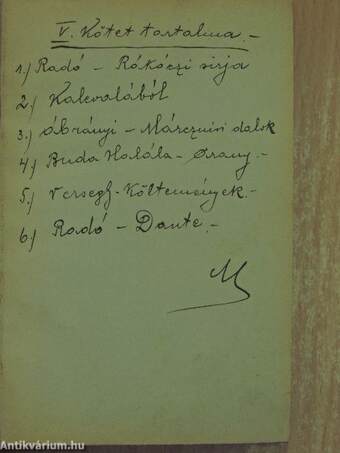 V. Kötet tartalma.-
1.) Radó - Rákóczi sirja
2.) Kalevalából
3.) Ábrányi - Márcziusi dalok
4.) Buda Halála - Arany.-
5.) Verseghy-Költemények.-
6.) Radó - Dante.-
M
Antikvárium.hu